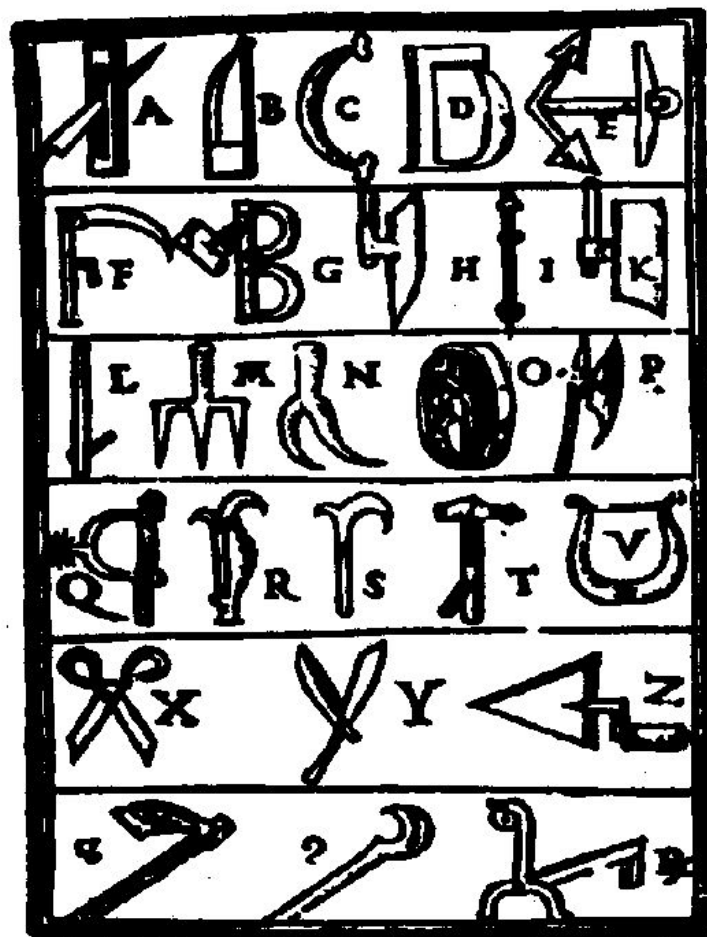 A B C D E
F G H I K
L M N O P
Q R S T V
X Y Z
&